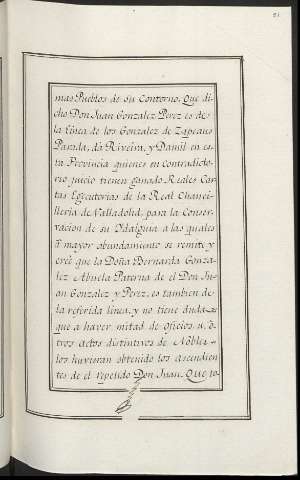 mas Pueblos de su Contorno. Que di-
cho Don Juan Gonzalez Perez es de s-
la Linea de los Gonzalez de Zapeaus
Parada, da Riveira, y Damil en es-
ta Provincia quienes en Contradicto-
rio juicio tienen ganado Reales Car-
tas Egecutorias de la Real Chanci-
lleria de Valladolid, para la Conser-
vacion de su Ydalguia a las quales
a mayor abundamiento se remite, y
cree que la Doña Bernarda Gonza-
lez Abuela Paterna de el Don Ju-
an Gonzalez y Perez, es tambien de
la referida linea, y no tiene duda
que a haver mitad de oficios, u, o
tros actos distintivos de Noble-
los huvieran obtenido los ascendien-
tes de el repetido Don Juan. Que to-